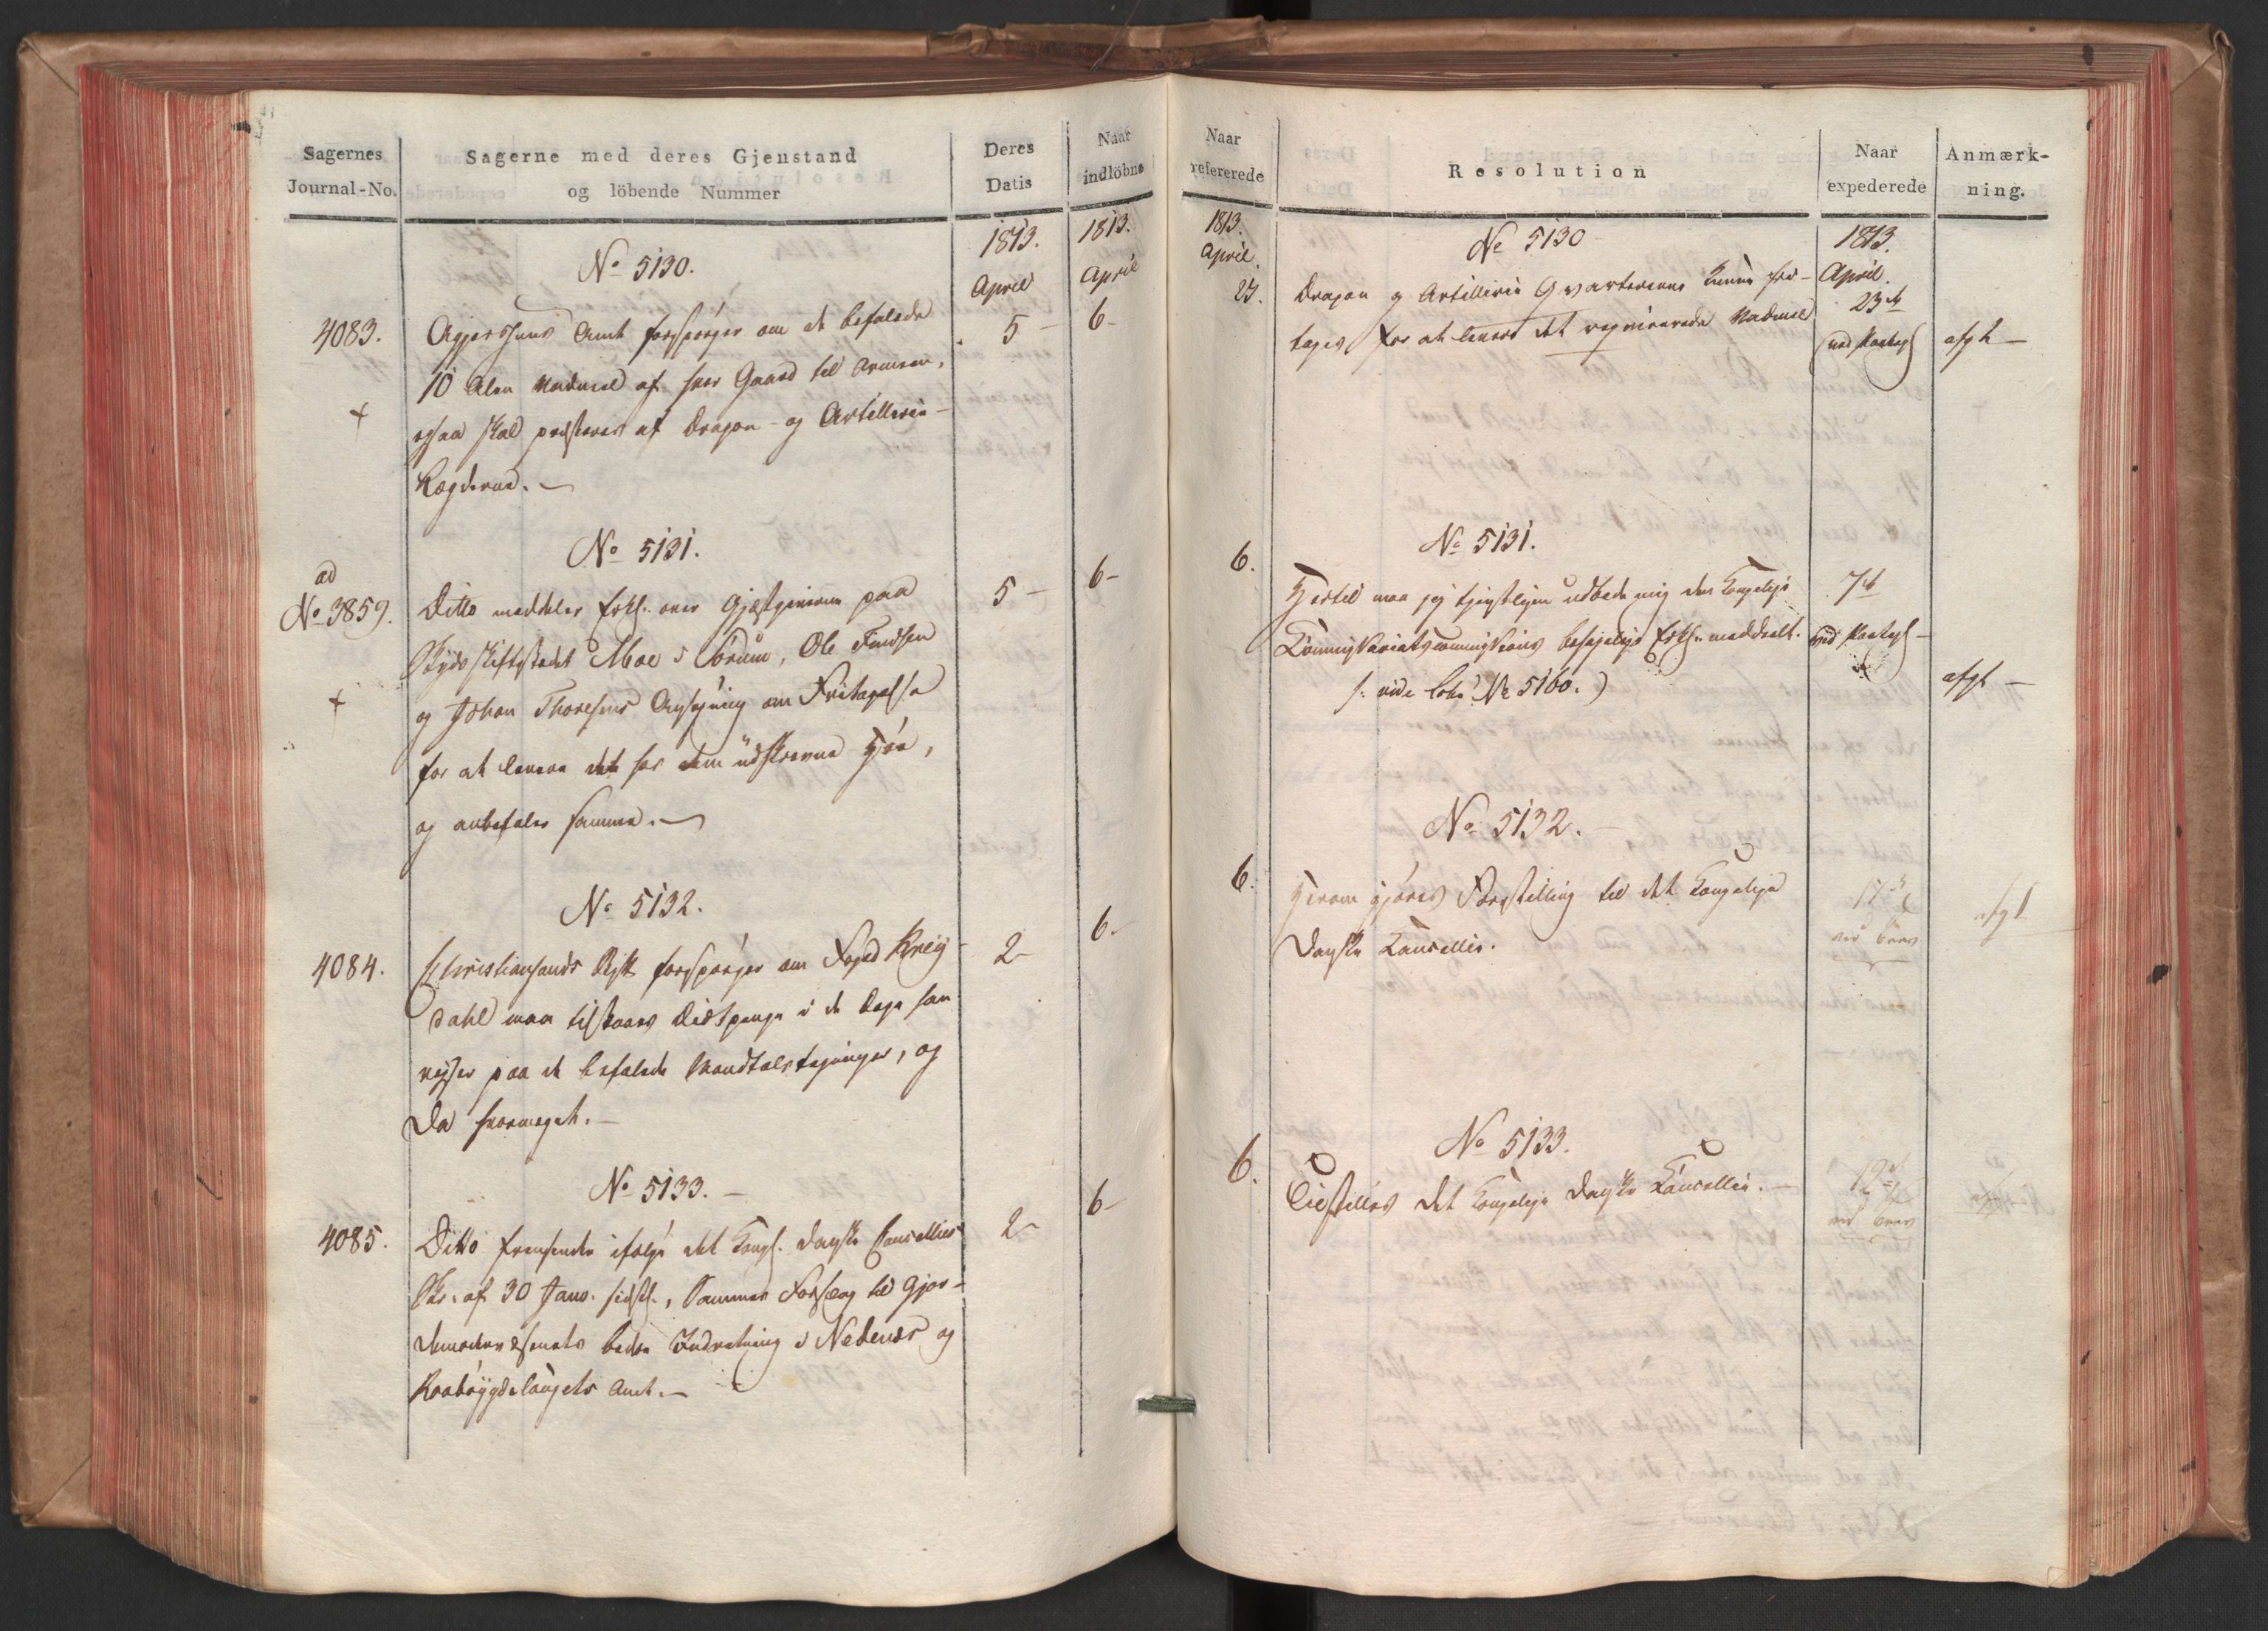 Sagernes
Journal-No.
Sagerne med deres Gjenstand
og löbende Nummer
Deres
Datis
Naar
indlöbne
1813.
April
1813.
April
No 5130.
4083.
Agershuus Amt forspörger om de befalede
5 -
6 -
10 Alen Vadmel af hver Gaard til Armeen,
ogsaa skal præsteres af Dragon- og Artillerie-
Lægderne. -
No 5131.
ad
No 3859.
Ditto meddeler Erkl. over Gjæstgiverne paa
5 -
6 -
Skydsskiftestedet Moe i Sörum, Ole
og Johan Thoresens Ansögning om Fritagelse
for at levere det hos dem udskrevne Höe,
og anbefaler samme. -
No 5132.
4084.
Christiansands Stift forspörger om Foged Kreig-
2 -
6 -
dahl maa tilstaaes Diætpenge i de Dage han
reiser paa de befalede Mandtalstegninger, og
da hvormeget. -
No 5133. -
4085.
Ditto fremsender ifölge det Kongl. danske Cancellies
2 -
6 -
Skr. af 30 Janv. sidstl., Sammes Forslag til Gjor-
demodervæsenets bedre Indretning i Nedenæs og
Raaböygdelaugets Amt. -
Naar
refererede
Resolution
Naar
expederede
Anmærk-
ning.
1813.
April.
No 5130
1813.
April.
23.
Dragon og Artillerie Qvartererne kunne fri-
23de
tages for at levere det reqvirerede Vadmel
ved Paategn
afgt -
No 5131.
6.
Hertil maa jeg tjenstligen udbede mig den Kongelige
7de
Commissariatscommissions behagelige Erkl. meddeelt.
ved Paategn -
(: vide Lobe No 5160.)
afgt -
No 5132. -
6.
Herom gjöres Forestilling til det Kongelige
17de
afgt
Danske Cancellie.
ved Brev
No 5133.
6.
Tilstilles det Kongelige Danske Cancellie. -
19de
ved Brev